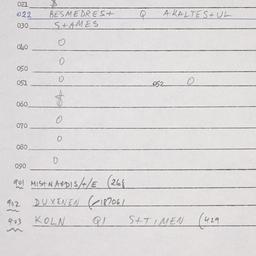 021
022 BESMEDRES+ Q AKALTES+UL
030 S+AMES
040 O
050 O
051 O 052 O
060
070 O
080 O
090 O
901 MIS+NA+DIS/+/E (268
902 DUXENEN (187061
903 KOLN Q1 S+TIMEN (429